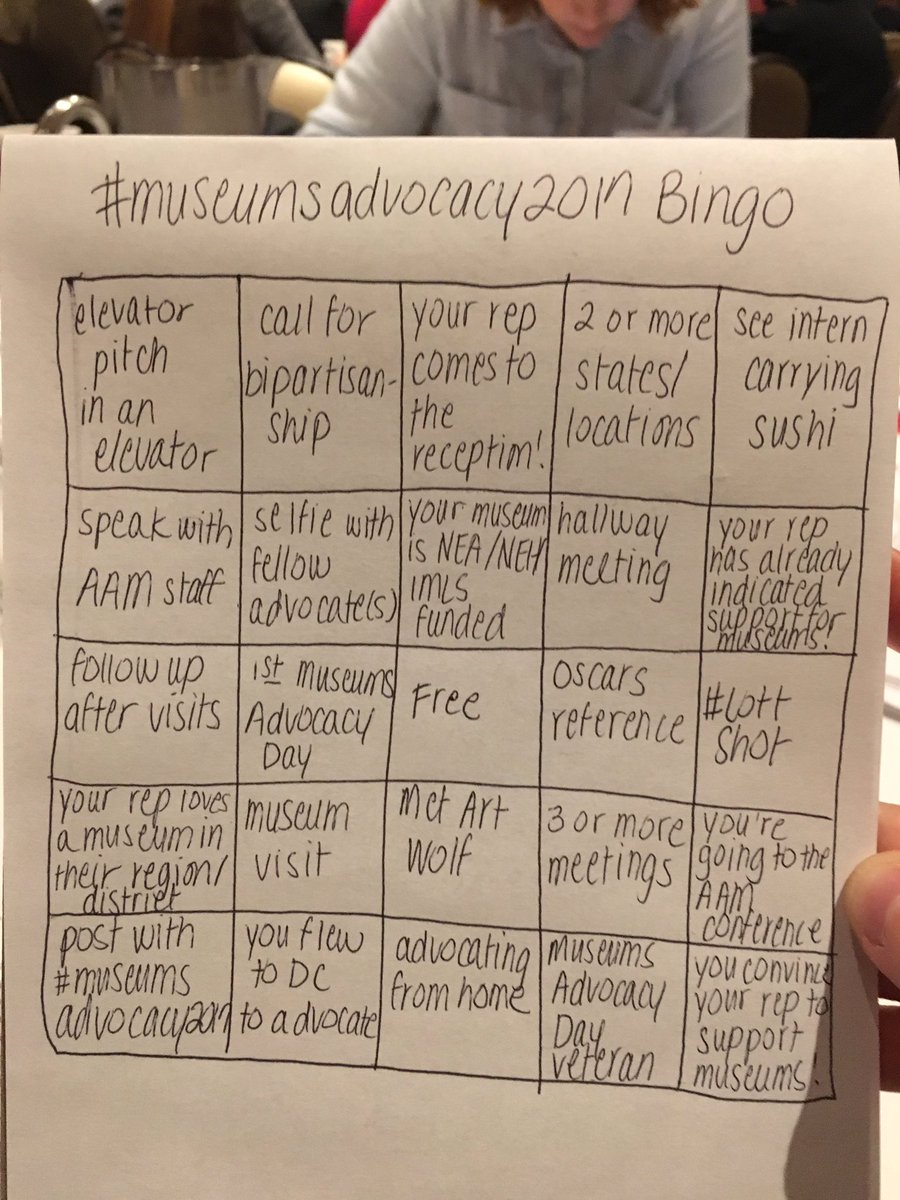 #museumsadvocacy2017 Bingo
elevator
pitch
in an
elevator
call for
bipartisan-
ship
your rep
comes to
the
reception!
2 or more
states/
locations
see intern
carrying
sushi
speak with
AAM staff
selfie with
fellow
advocate(s)
your museum
is NEA/NEH/
IMLS
funded
hallway
meeting
your rep
has already
indicated
support for
museums!
follow up
after visits
1st museums
Advocacy
Day
Free
Oscars
reference
#Lott
Shot
your rep loves
a museum in
their region/
district
museum
visit
Met Art
Wolf
3 or more
meetings
you're
going to the
AAM
conference
post with
#museums
advocacy2017
you flew
to DC
to advocate
advocating
from home
Museums
Advocacy
Day
veteran
you convince
your rep to
support
museums!